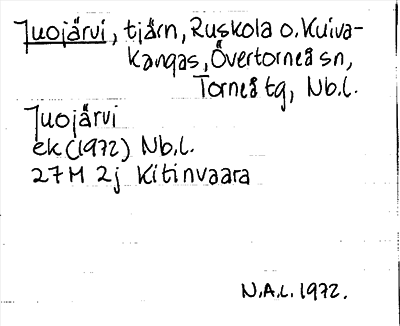 Juojärvi, tjärn, Ruskola o. Kuiva-
kangas, Övertorneå sn,
Torneå tg, Nb.l.
Juojärvi
ek (1972) Nb.l.
27M 2j Kitinvaara
N.A.L. 1972.